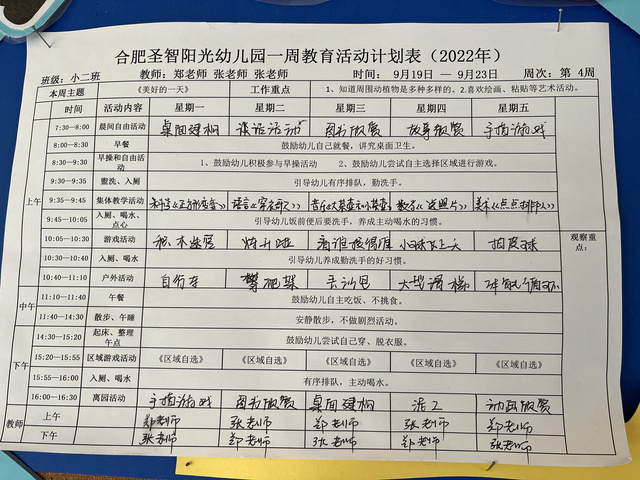 合肥圣智阳光幼儿园一周教育活动计划表（2022年）
班级：小二班 教师：郑老师 张老师 张老师 时间： 9月19日 — 9月23日 周次：第 4周
本周主题 《美好的一天》 工作重点 1、知道周围动植物是多种多样的。2.喜欢绘画、粘贴等艺术活动。
时间 活动内容 星期一 星期二 星期三 星期四 星期五
上午
7:30—8:00 晨间自由活动 桌面建构 谈话活动 图书欣赏 故事欣赏 手指游戏
8:00—8:30 早餐 鼓励幼儿自己就餐，讲究桌面卫生。
8:30—9:30 早操和自由活动 1、鼓励幼儿积极参与早操活动 2、鼓励幼儿尝试自主选择区域进行游戏。
9:30—9:35 盥洗、入厕 引导幼儿有序排队，勤洗手。
9:35—9:45 集体教学活动 数学《送照片》 美术《点点排排队》
9:45—10:05 入厕、喝水、点心 引导幼儿饭前便后要洗手，养成主动喝水的习惯。
10:05—10:30 游戏活动 拍皮球
观察重点：
10:30—10:40 入厕、喝水 引导幼儿养成勤洗手的好习惯。
10:40—11:10 户外活动 自行车 攀爬架 丢沙包 大型滑梯
中午
11:10—11:40 午餐 鼓励幼儿自主吃饭、不挑食。
11:40—14:30 散步、午睡 安静散步，不做剧烈活动。
下午
14:30—15:20 起床、整理午点 鼓励幼儿尝试自己穿、脱衣服。
15:20—15:55 区域游戏活动 《区域自选》 《区域自选》 《区域自选》 《区域自选》 《区域自选》
15:55—16:00 入厕、喝水 有序排队，主动喝水。
16:00—16:30 离园活动 手指游戏 图书欣赏 桌面建构 泥工 动画欣赏
教师
上午 郑老师 张老师 郑老师 张老师 郑老师
下午 张老师 郑老师 张老师 郑老师 张老师